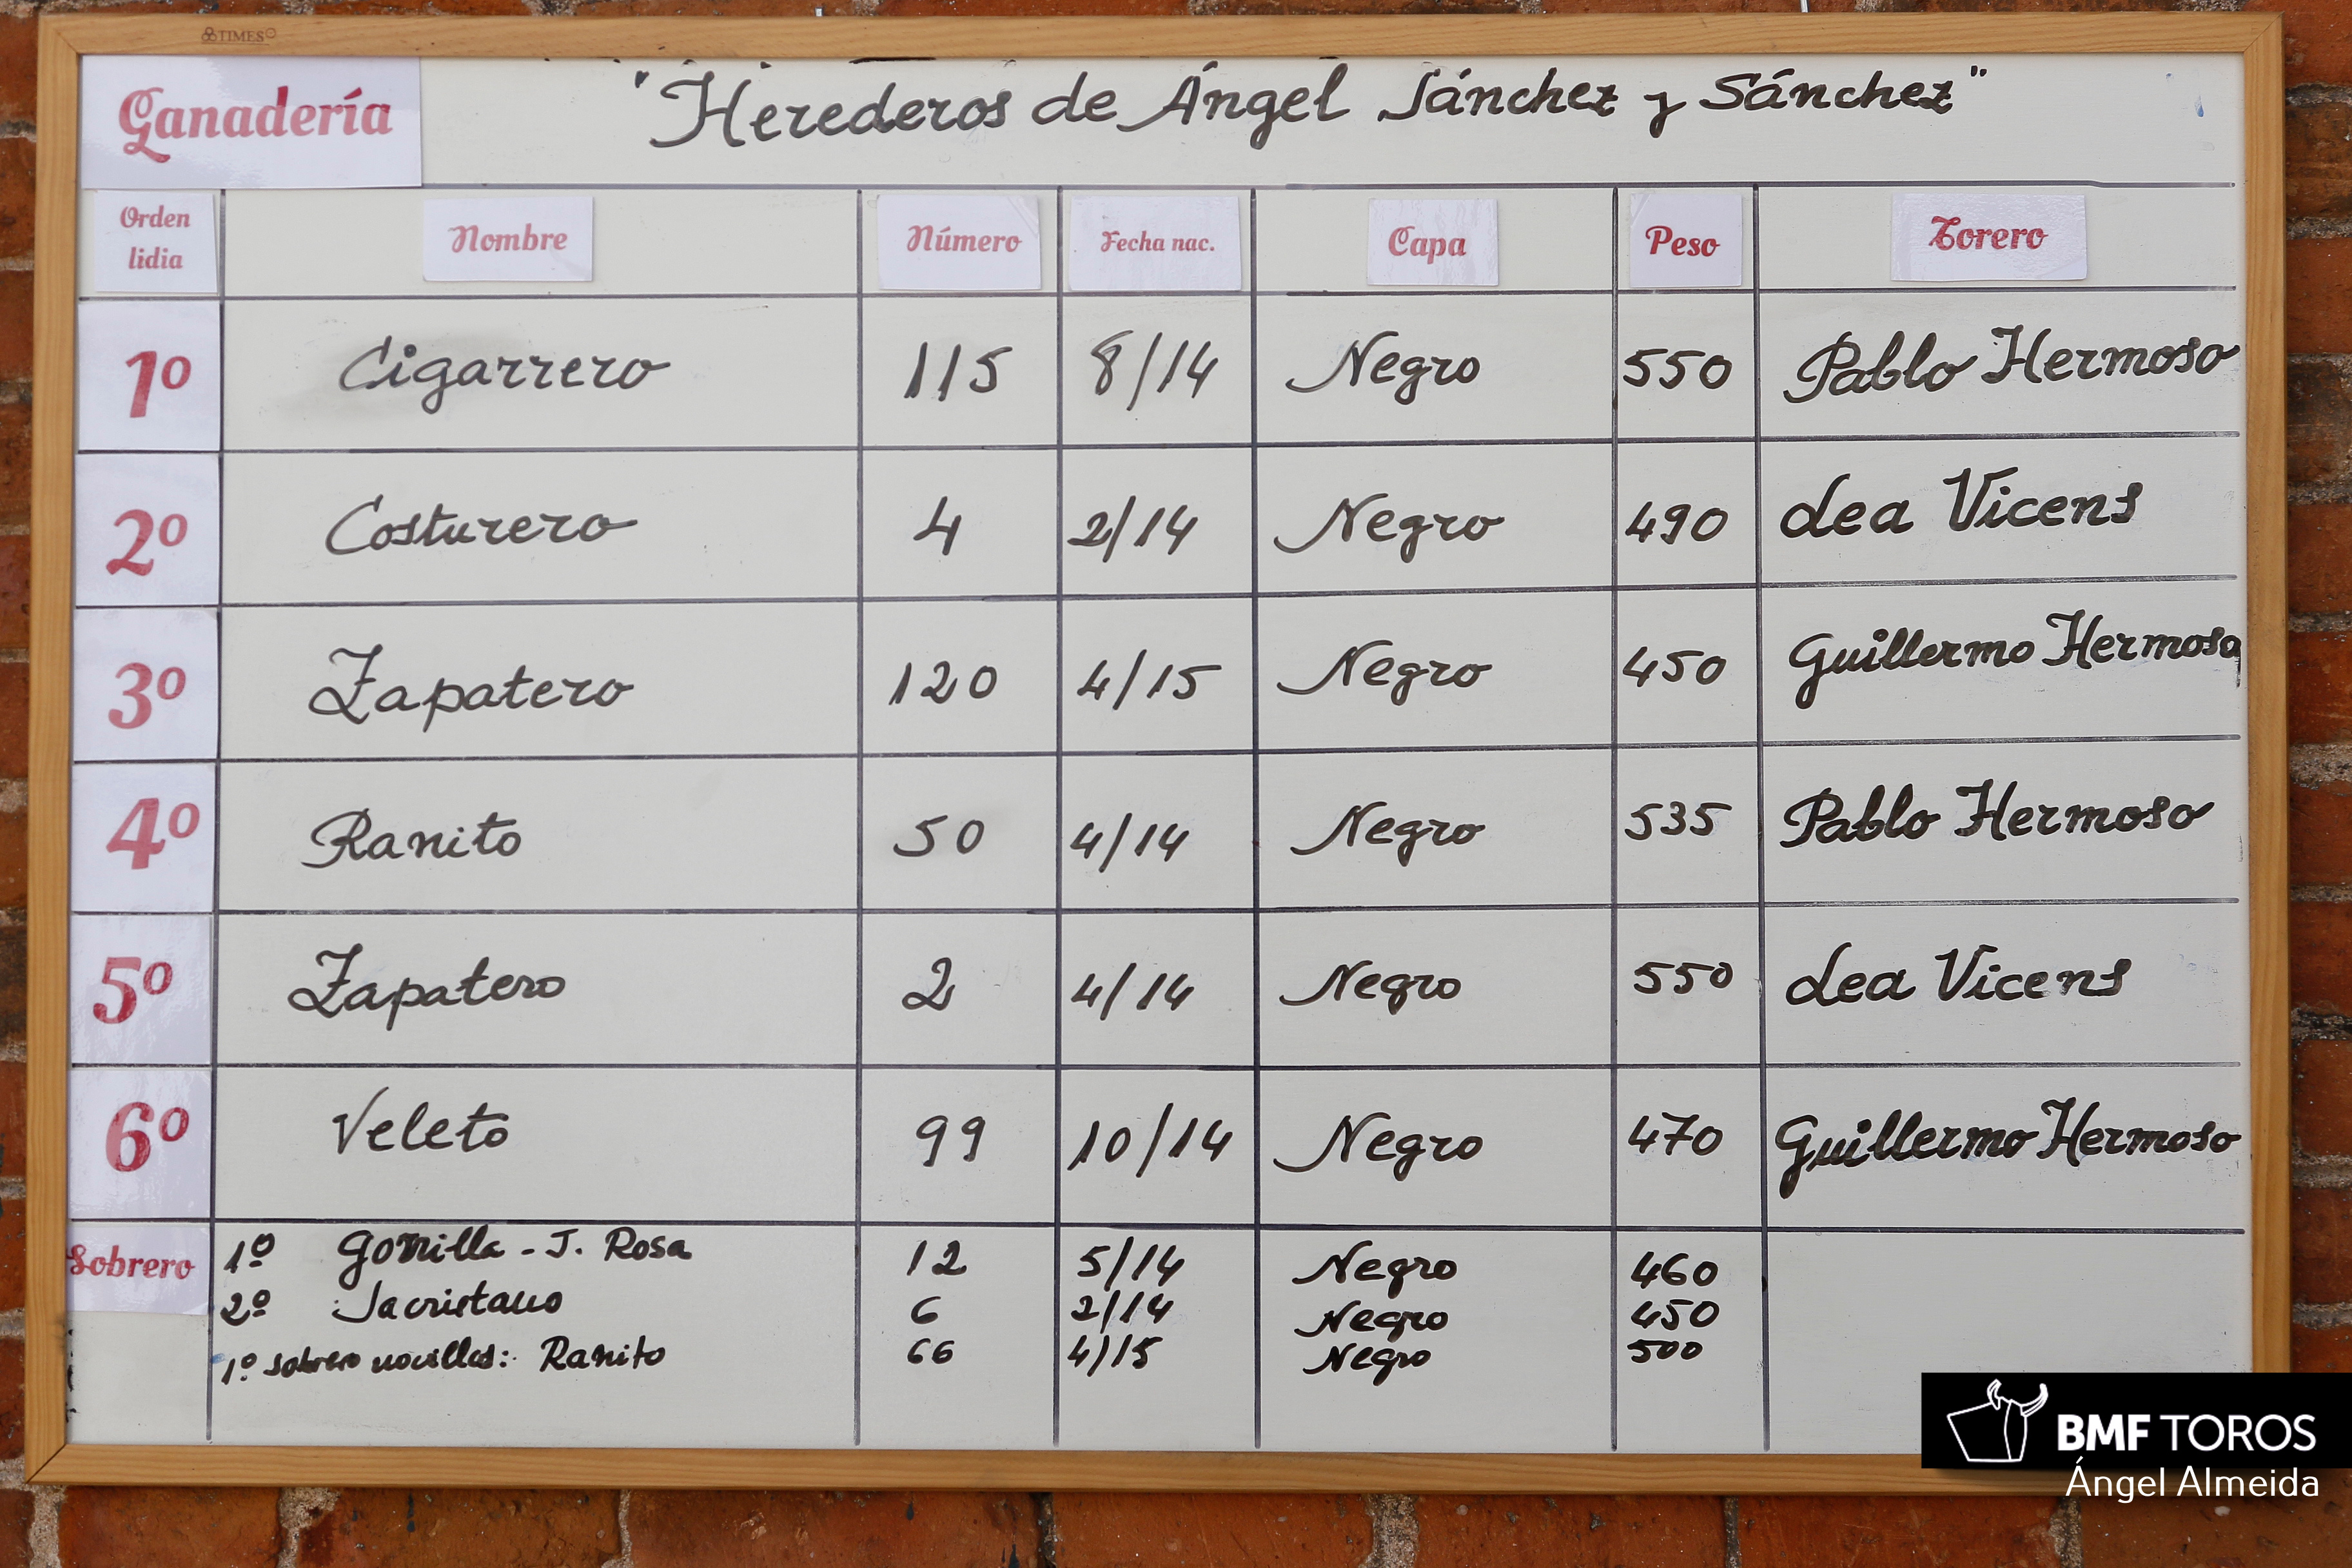 TIMES
Ganadería "Herederos de Ángel Sánchez y Sánchez"
Orden lidia Nombre Número Fecha nac. Capa Peso Torero
1º Cigarrero 115 8/14 Negro 550 Pablo Hermoso
2º Costurero 4 2/14 Negro 490 Lea Vicens
3º Zapatero 120 4/15 Negro 450 Guillermo Hermoso
4º Ranito 50 4/14 Negro 535 Pablo Hermoso
5º Zapatero 2 4/14 Negro 550 Lea Vicens
6º Veleto 99 10/14 Negro 470 Guillermo Hermoso
Sobrero 1º Gorrilla - J. Rosa 12 5/14 Negro 460
2º Sacristano 6 2/14 Negro 450
1º sobrero novillos: Ranito 66 4/15 Negro 500
BMF TOROS
Ángel Almeida